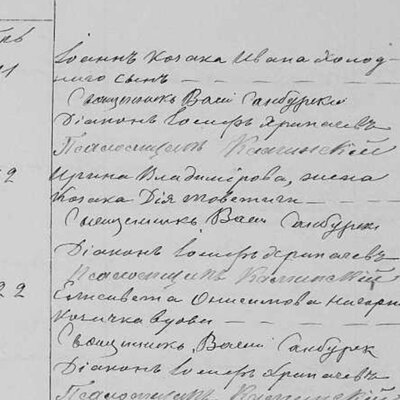 Іоаннъ Козака Ивана Холод-
ного сынъ
Священникъ Васи Самбурски
Діаконъ Іосифъ Хрипачевъ
Псаломщикъ Каминскій
22
Ирина Владимірова, жена
Козака Дія
Священникъ Васи Самбурски
Діаконъ Іосифъ Хрипачевъ
Псаломщикъ Каминскій
22 Елисавета Онисимова
Козачка вдова
Священникъ Васи Самбурск
Діаконъ Іосифъ Хрипачевъ
Псаломщикъ Каминскій